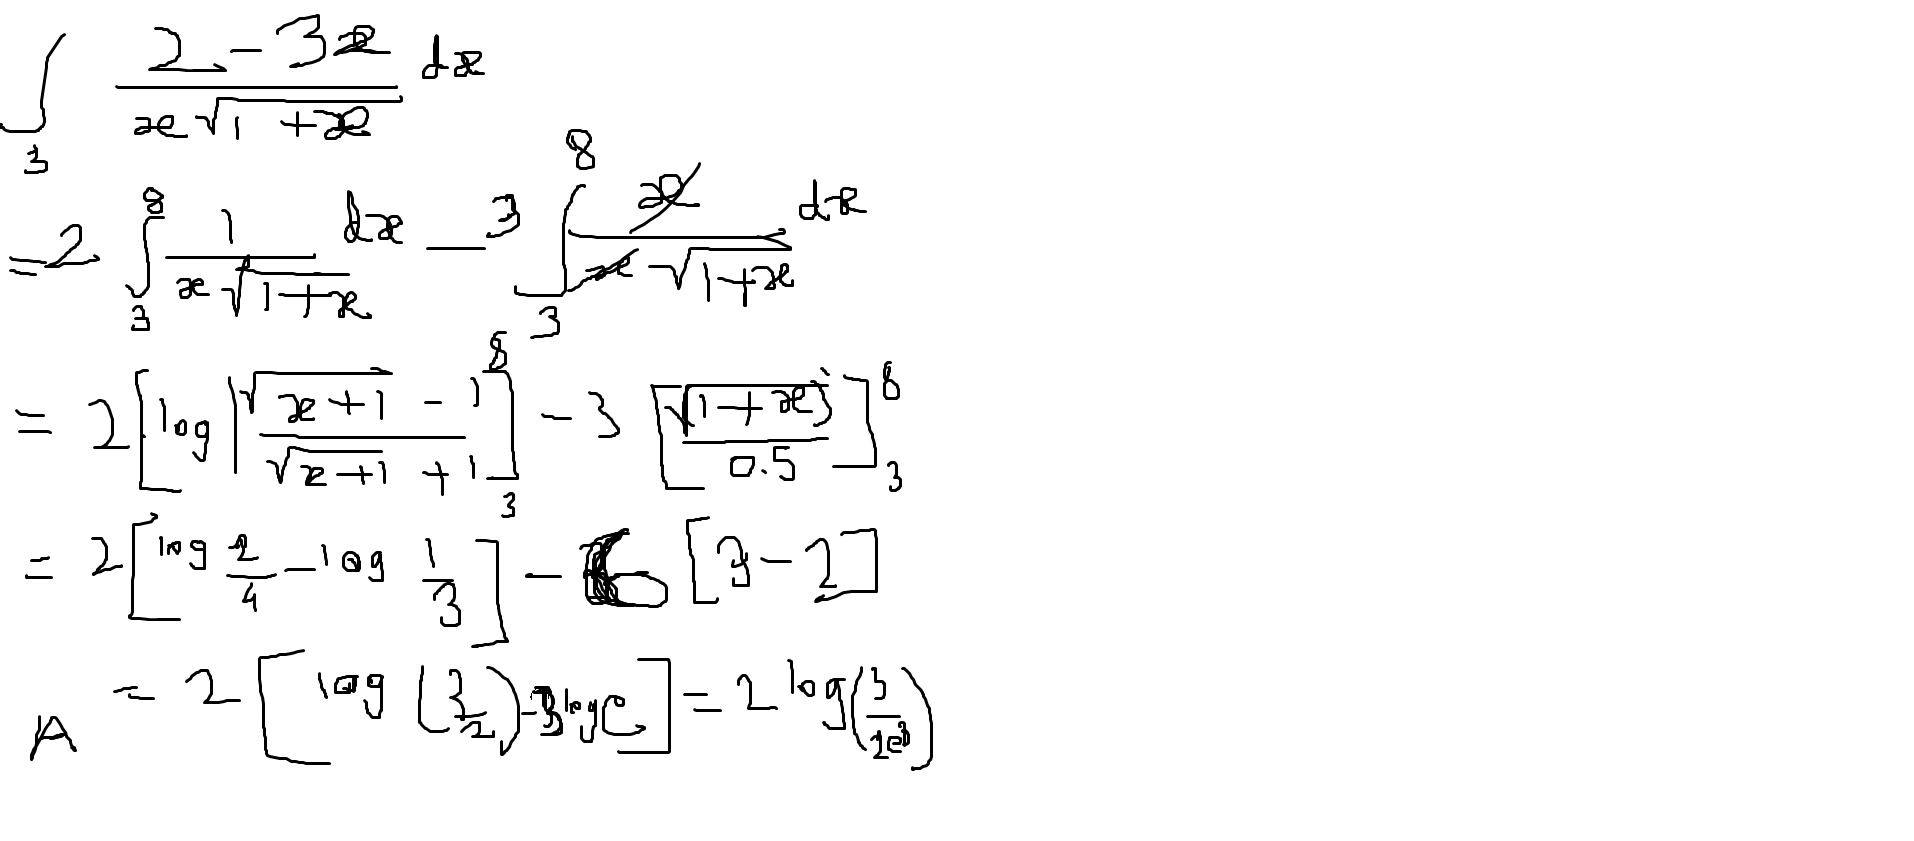 ∫₃ (2 - 3x)/(x√(1 + x)) dx
= 2 ∫₃⁸ 1/(x√(1+x)) dx - 3 ∫₃⁸ x/(x√(1+x)) dx
= 2 [log |(√(x+1) - 1)/(√(x+1) + 1)]₃⁸ - 3 [√(1+x)/0.5]₃⁸
= 2 [log 2/4 - log 1/3] - 6 [3 - 2]
= 2 [log (3/2) - 3 log e] = 2 log (3/2e³)
A